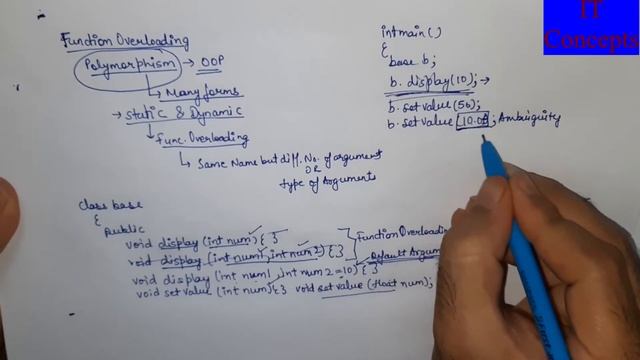 IT
Concepts
Function Overloading
Polymorphism → OOP
Many forms
→ Static & Dynamic
Func. Overloading
Same Name but diff. No. of argument
OR
type of Arguments
int main ( )
{
base b;
b. display(10); →
b. set value (50);
b. set value (10.0); Ambiguity
class base
{
public
void display (int num) { }
void display (int num1, int num 2) { }
Function Overloading
void display (int num1, int num 2=10) { }
Default Argum
void set value (int num) { } void set value (float num);